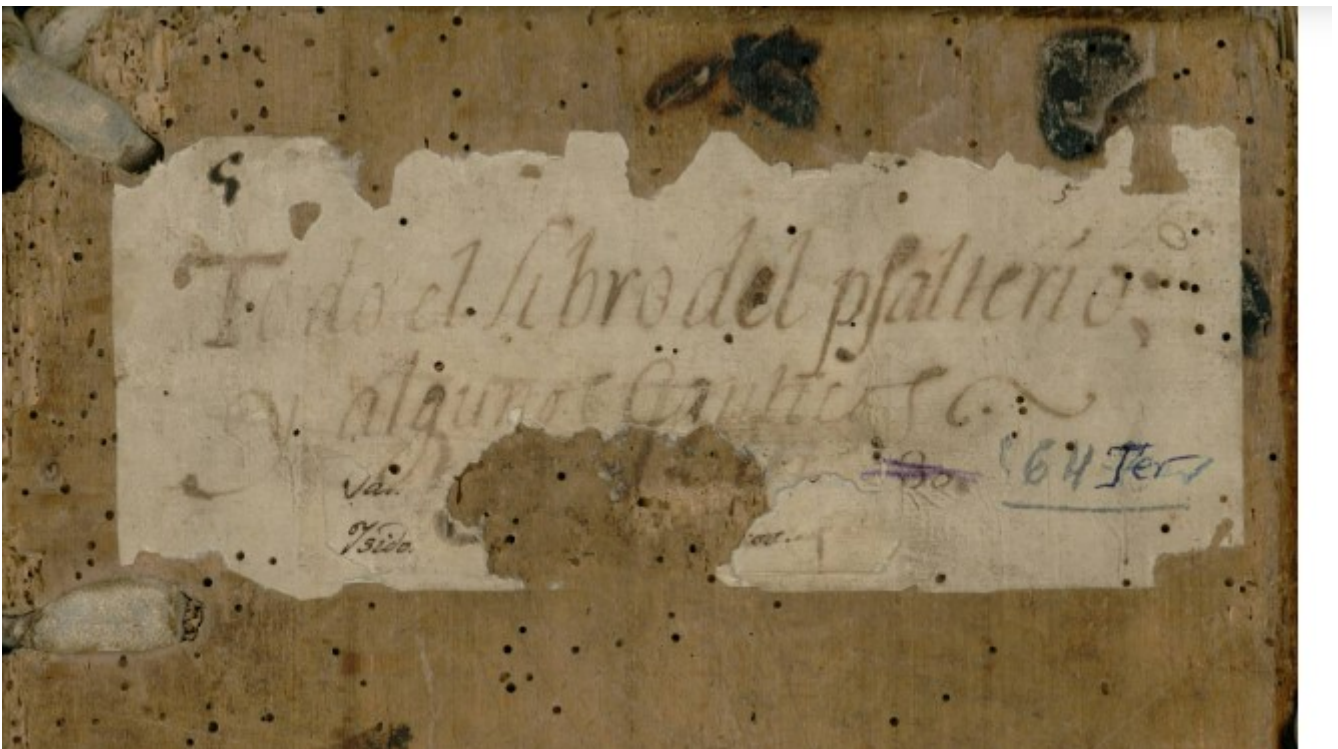 5 5
Todo el libro del psalterio
y algunos Canticos
64 Ter
San
Ysido